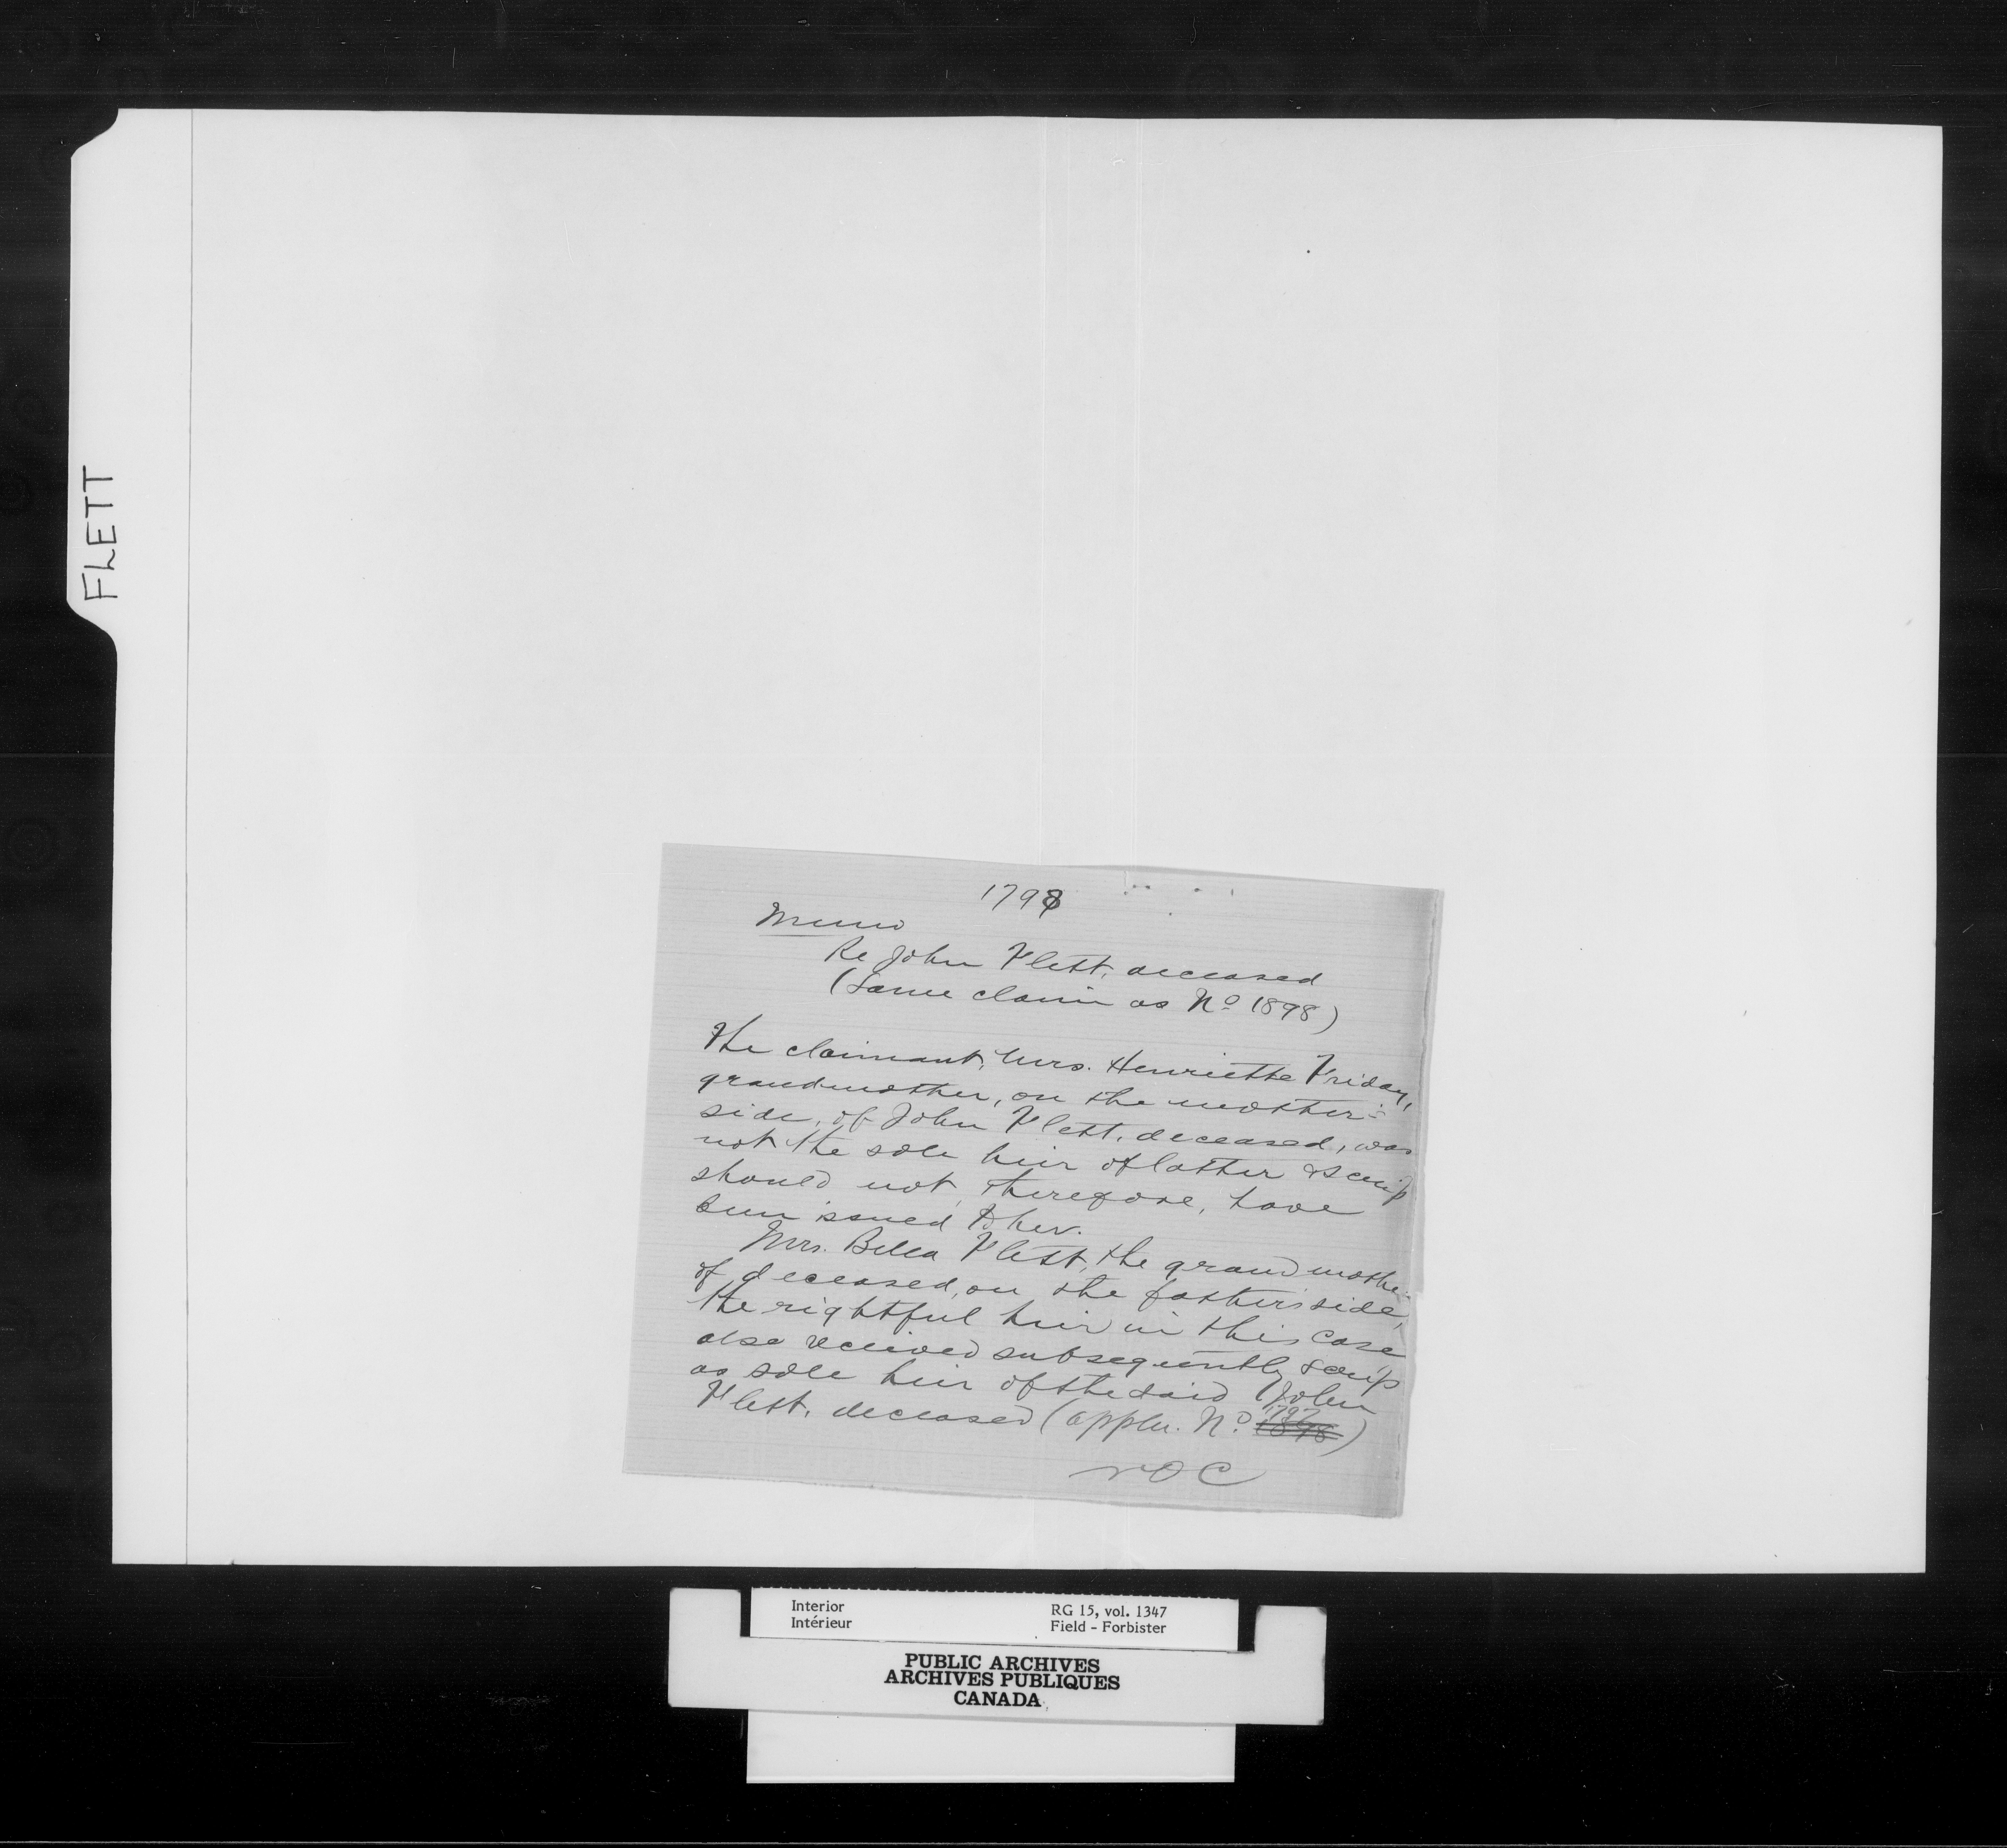 FLETT
1798
Memo
Re John Flett, deceased
(Same claim as No 1898)
The claimant, Mrs. Henriette Friday,
grandmother, on the mother's
side, of John Flett, deceased, was
not the sole heir of latter & scrip
should not, therefore, have
been issued to her.
Mrs. Bella Flett, the grandmother
of deceased, on the father's side,
the rightful heir in this case
also received subsequently scrip
as sole heir of the said John
Flett, deceased (appln. No. 1898 1797)
NOC
Interior
Intérieur
RG 15, vol. 1347
Field - Forbister
PUBLIC ARCHIVES
ARCHIVES PUBLIQUES
CANADA